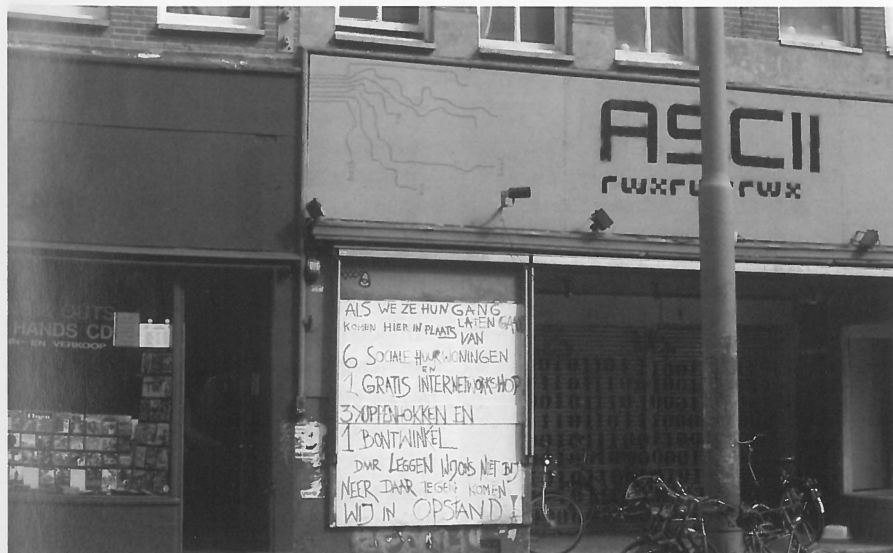 ASCII
rwxrwxrwx
OUTS
HANDS CD
IN- EN VERKOOP
ALS WE ZE HUN GANG
LATEN GAAN
KOMEN HIER IN PLAATS VAN
6 SOCIALE HUURWONINGEN
EN
1 GRATIS INTERNETWORKSHOP
3 YUPPENHOKKEN EN
1 BONTWINKEL
DAAR LEGGEN WIJ ONS NIET BIJ
NEER DAAR TEGEN KOMEN
WIJ IN OPSTAND!